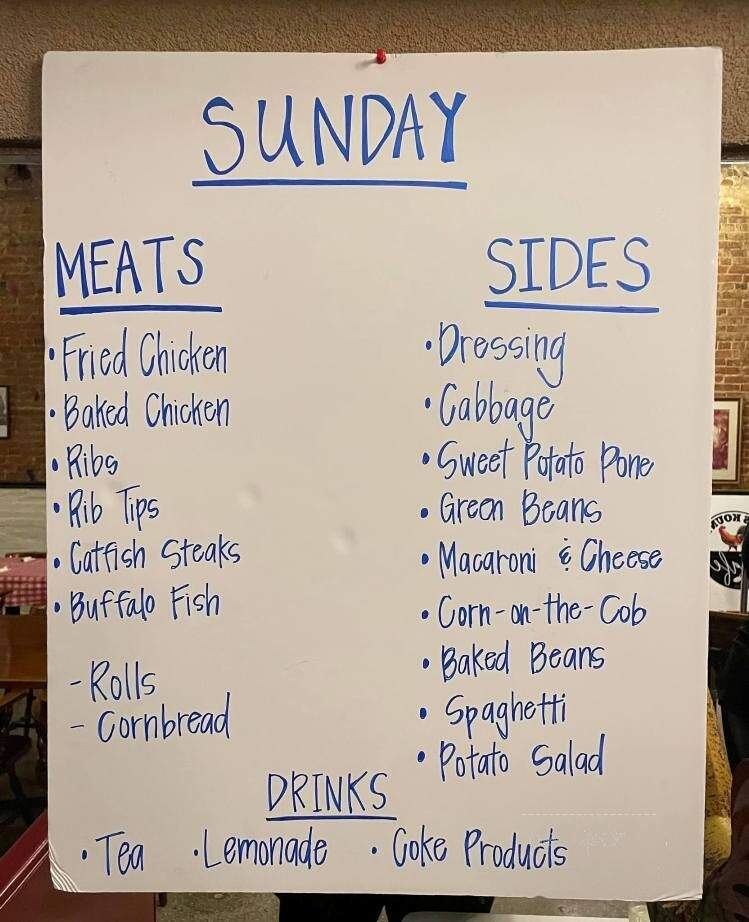 SUNDAY
MEATS
• Fried Chicken
• Baked Chicken
• Ribs
• Rib Tips
• Catfish Steaks
• Buffalo Fish
- Rolls
- Cornbread
SIDES
• Dressing
• Cabbage
• Sweet Potato Pone
• Green Beans
• Macaroni & Cheese
• Corn-on-the-Cob
• Baked Beans
• Spaghetti
• Potato Salad
DRINKS
• Tea • Lemonade • Coke Products